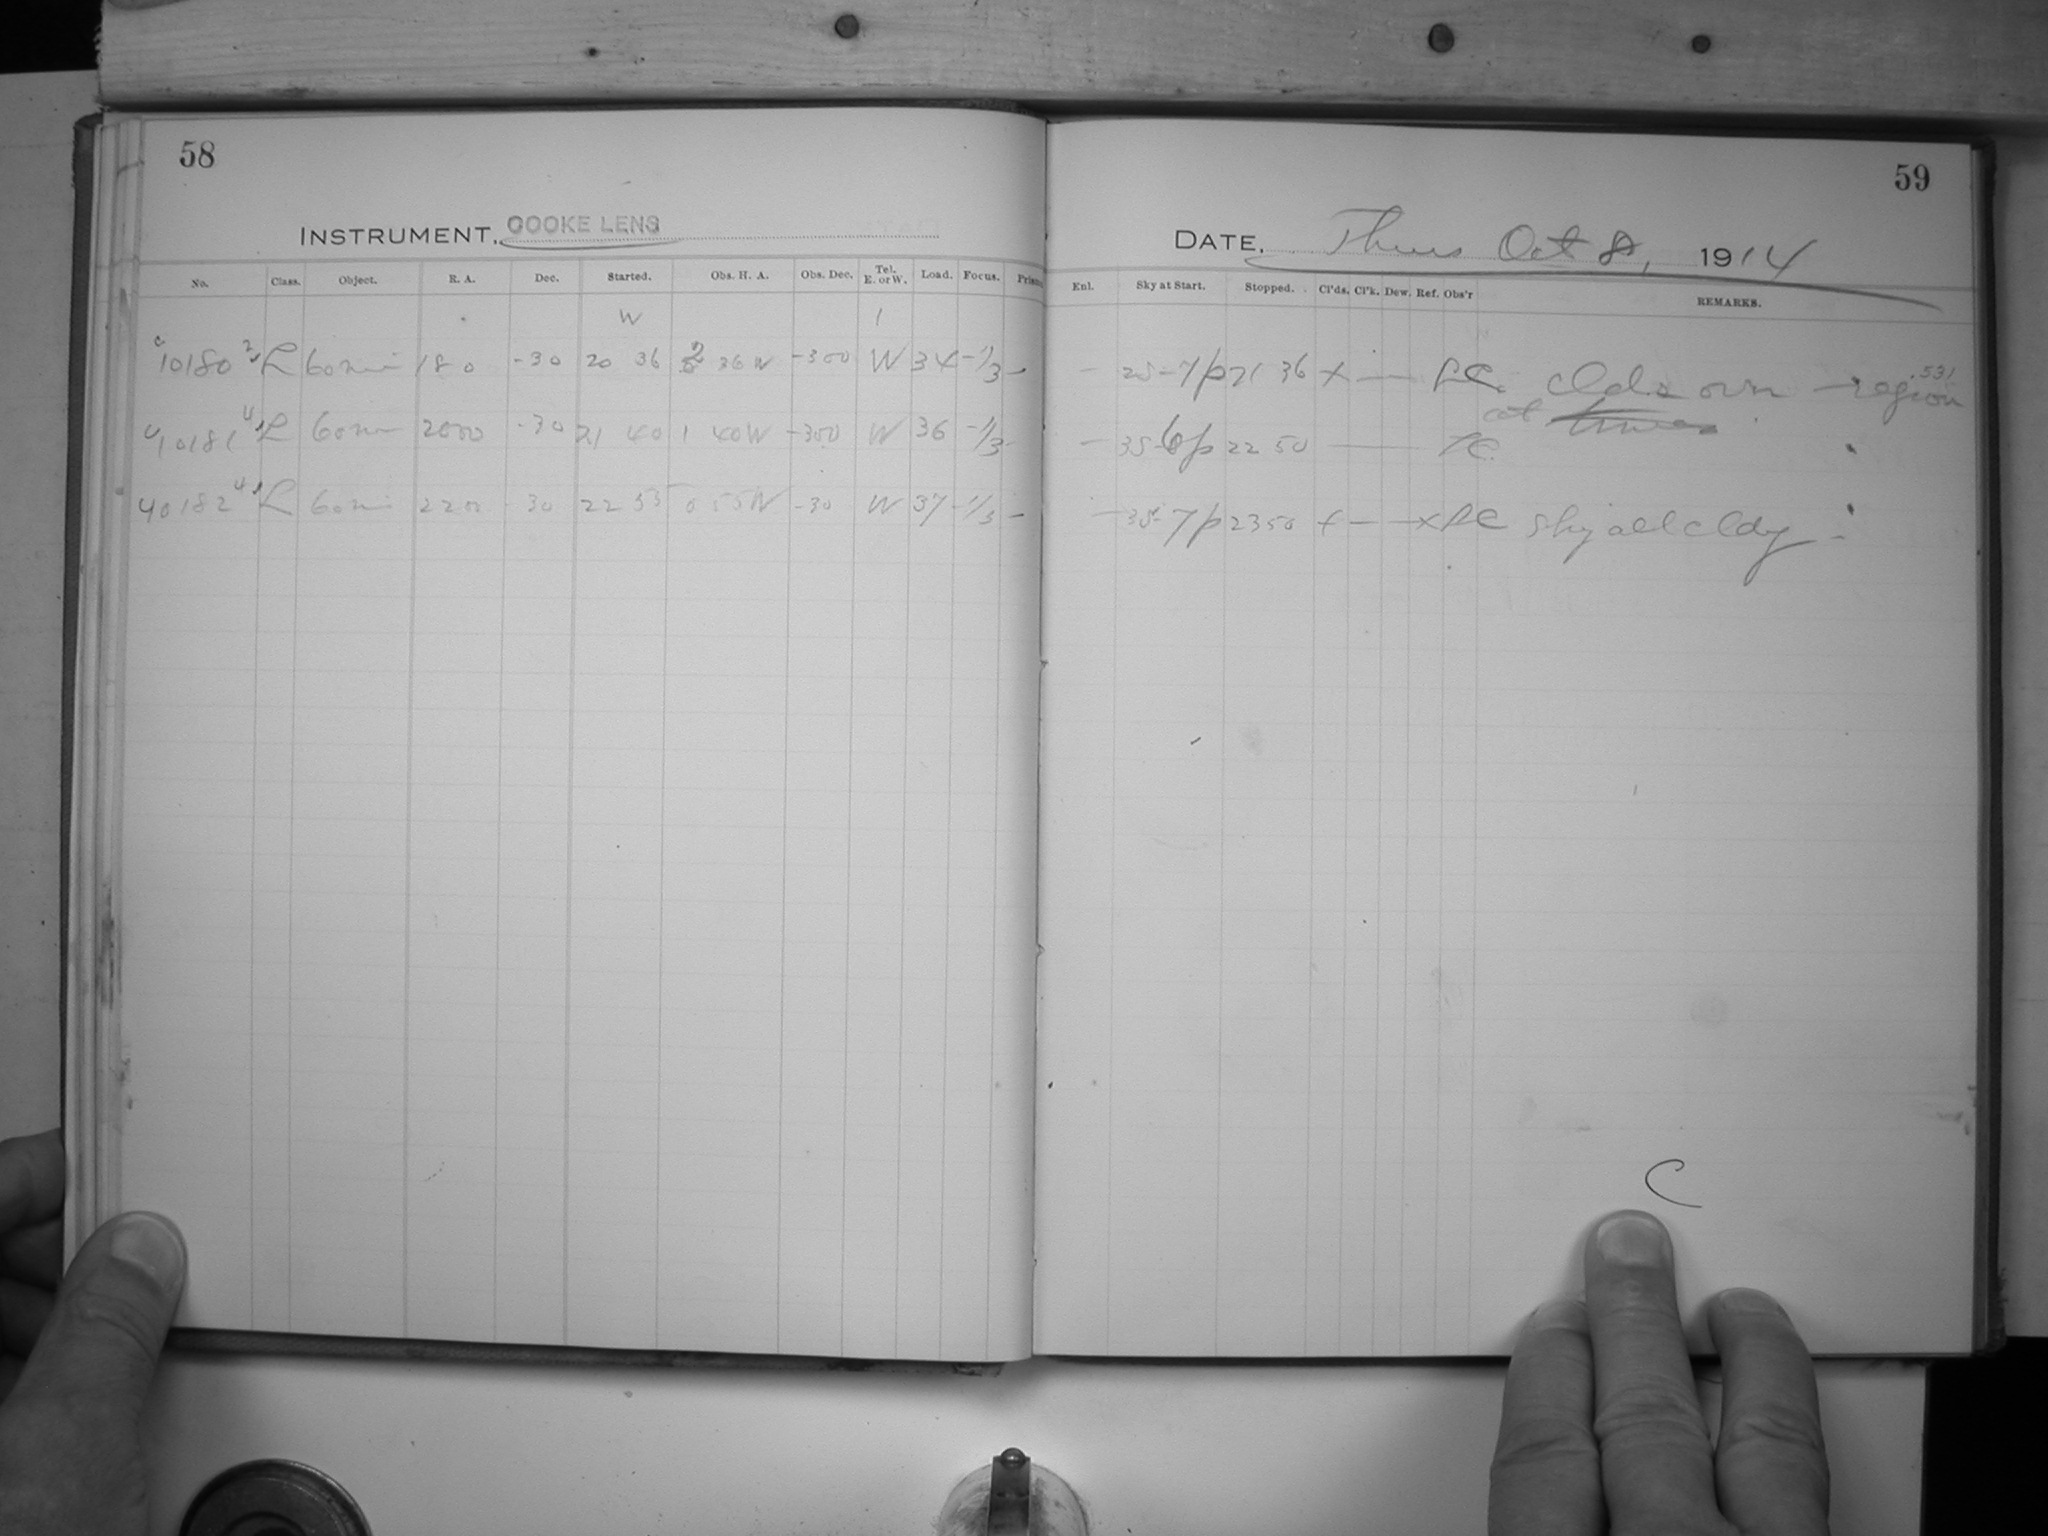 58
INSTRUMENT. COOKE LENS
No. Class. Object. R. A. Dec. Started. Obs. H. A. Obs. Dec. Tel. E. or W. Load. Focus. Prism
W 1
10180 L 60 min 18 0 -30 20 36 2 36 W -300 W 34 -1/3 -
10181 L 60 min 2000 -30 21 40 1 40 W -300 W 36 -1/3 -
10182 L 60 min 2200 -30 22 55 0 55 W -30 W 37 -1/3 -
59
DATE. Thurs Oct 8, 1914
Enl. Sky at Start. Stopped. Cl'ds. Cl'k. Dew. Ref. Obs'r REMARKS.
- 25-7p 21 36 x — LC. Clds over region .531
at times
- 35-6p 22 50 — LC.
- 35-7p 23 50 x — — x LC Sky all cldy -
C